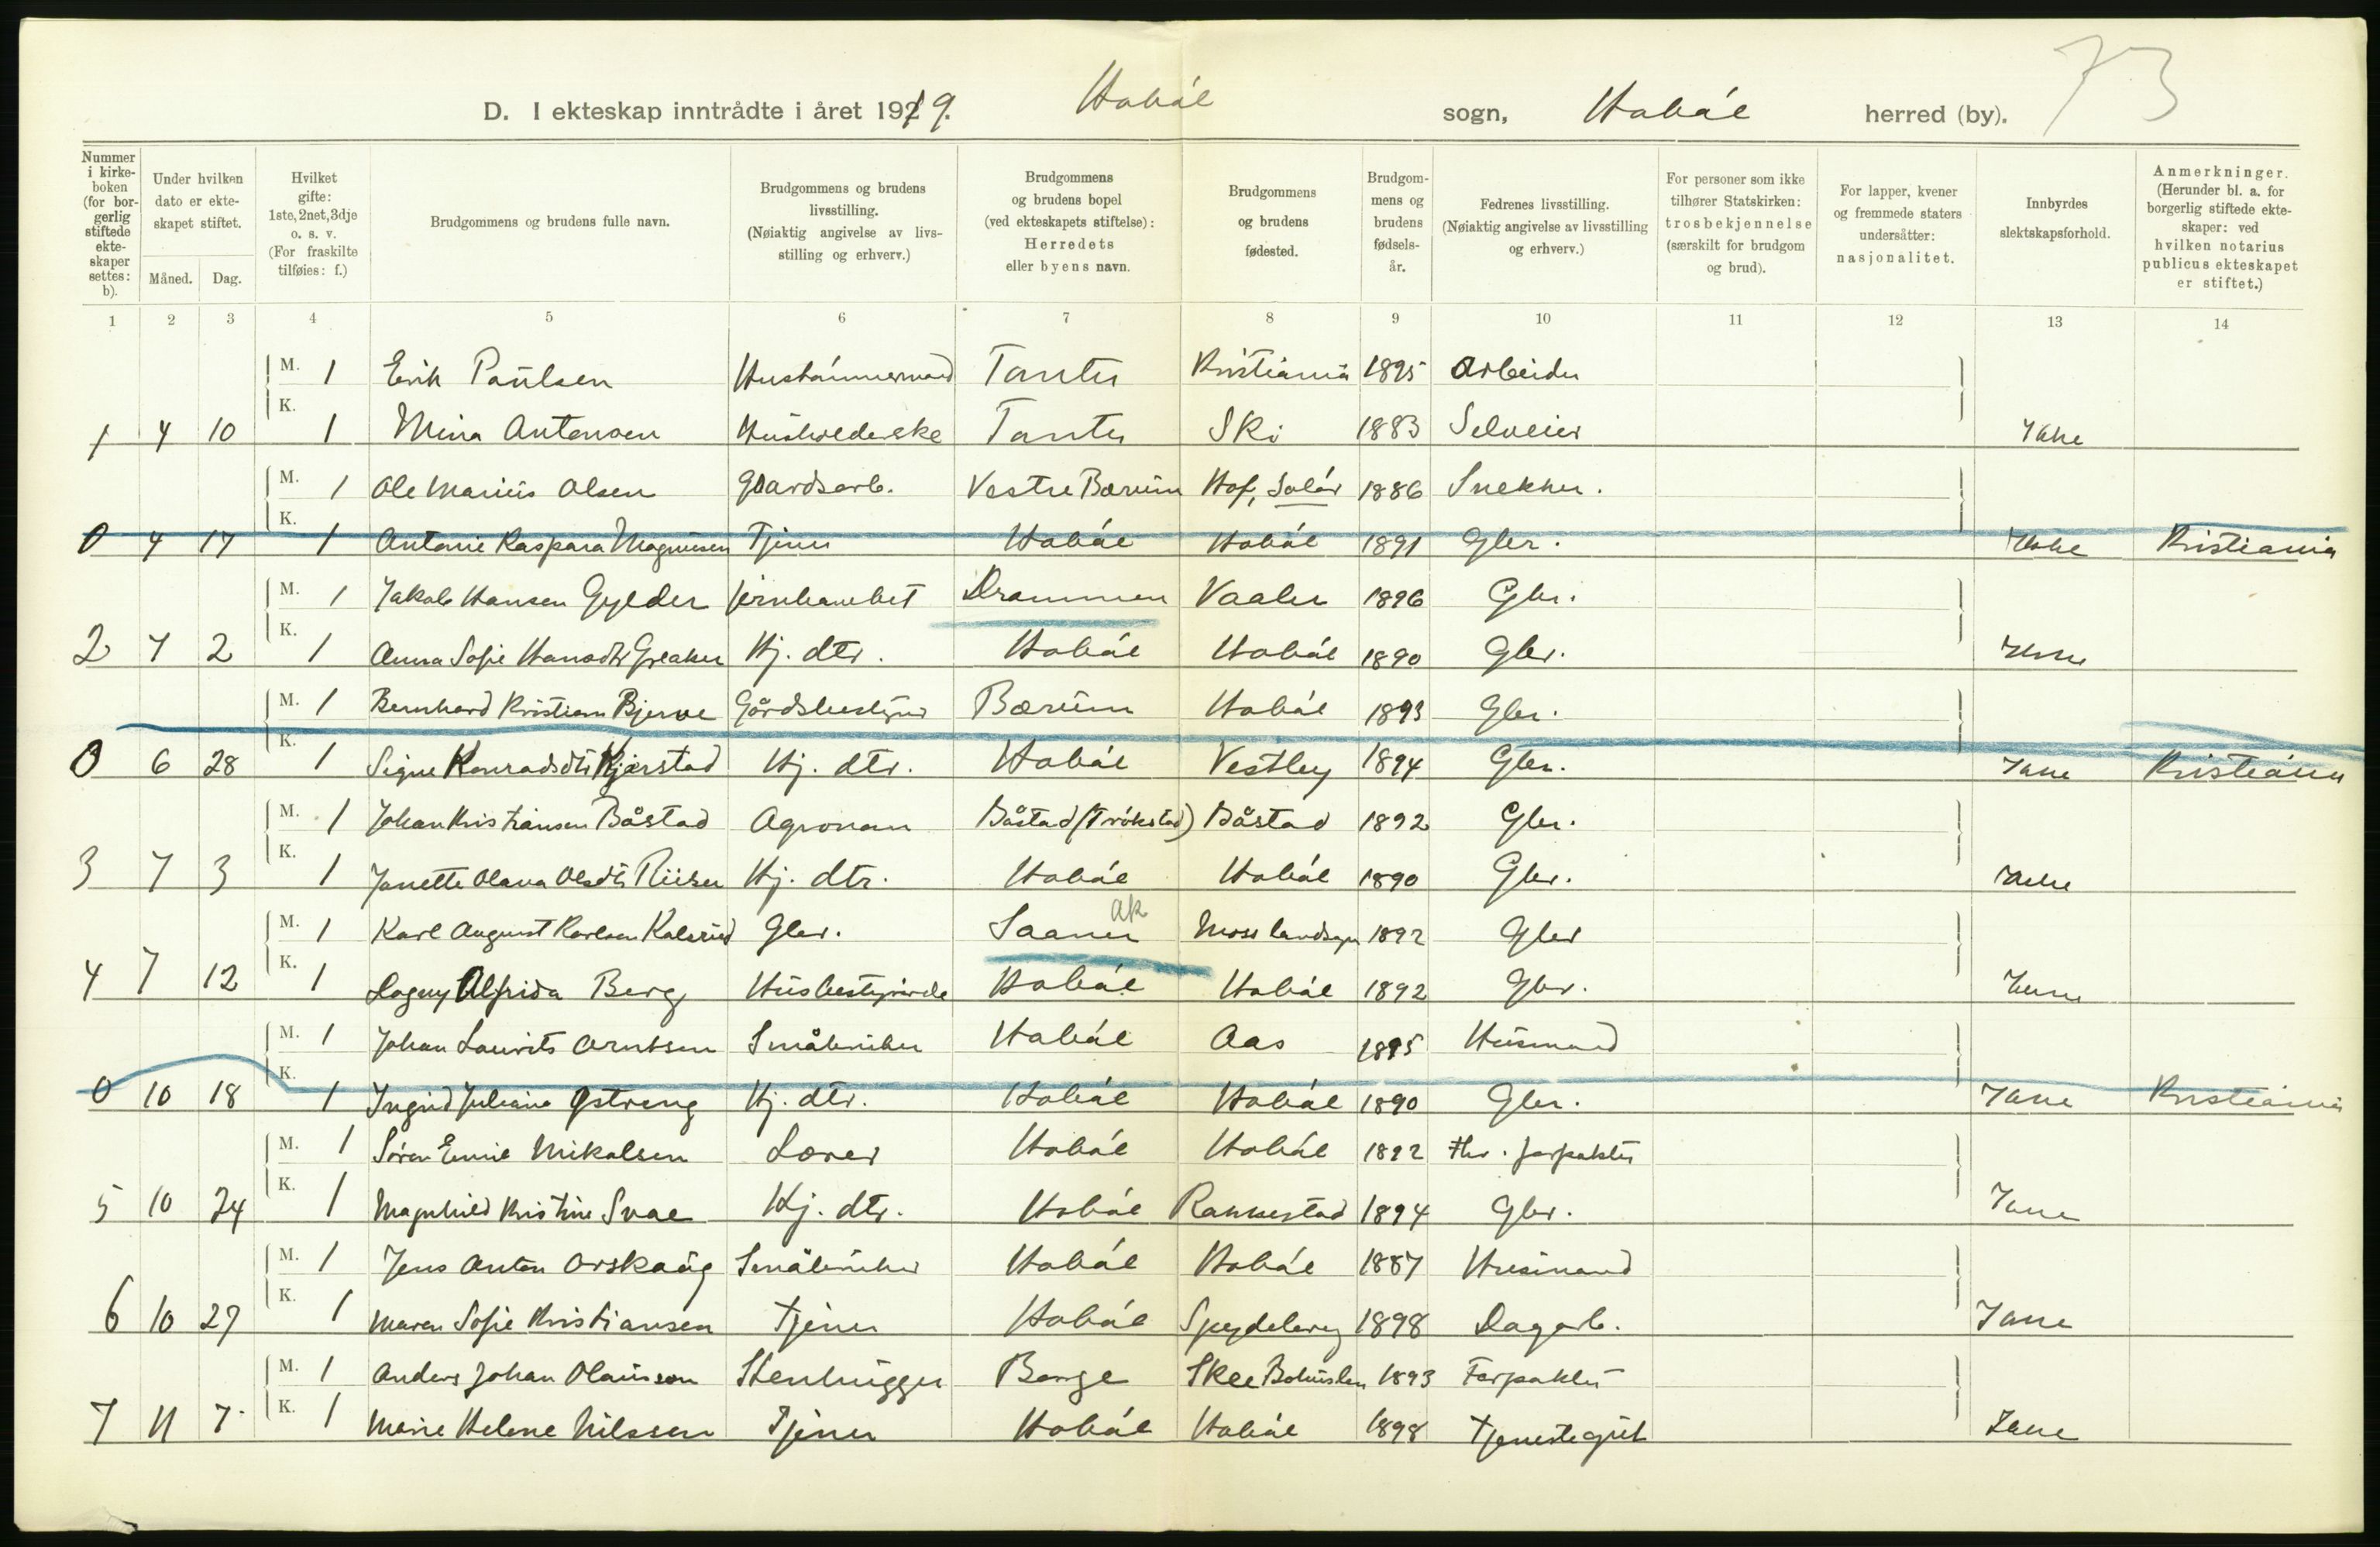 73
D. I ekteskap inntrådte i året 1919. Hobøl sogn, Hobøl herred (by).
Nummer i kirke-boken (for bor-gerlig stiftede ekte-skaper settes: b).
Under hvilken dato er ekte-skapet stiftet.
Måned. Dag.
Hvilket gifte: 1ste, 2net, 3dje o. s. v. (For fraskilte tilføies: f.)
Brudgommens og brudens fulle navn.
Brudgommens og brudens livsstilling. (Nøiaktig angivelse av livs-stilling og erhverv.)
Brudgommens og brudens bopel (ved ekteskapets stiftelse): Herredets eller byens navn.
Brudgommens og brudens fødested.
Brudgom-mens og brudens fødsels-år.
Fedrenes livsstilling. (Nøiaktig angivelse av livsstilling og erhverv.)
For personer som ikke tilhører Statskirken: trosbekjennelse (særskilt for brudgom og brud).
For lapper, kvener og fremmede staters undersåtter: nasjonalitet.
Innbyrdes slektskapsforhold.
Anmerkninger. (Herunder bl. a. for borgerlig stiftede ekte-skaper: ved hvilken notarius publicus ekteskapet er stiftet.)
1 2 3 4 5 6 7 8 9 10 11 12 13 14
M. 1 Erik Paulsen Hustømmermand Tomter Kristiania 1895 Arbeider
1 4 10 K. 1 Mina Antonsen Husholderske Tomter Ski 1883 Selveier Ikke
M. 1 Ole Marius Olsen Gaardsarb. Vestre Bærum Hof, Solør 1886 Snekker.
0 4 17 K. 1 Antonie Kaspara Magnusen Tjener Hobøl Hobøl 1891 Gbr. Ikke Kristiania
M. 1 Jakob Hansen Gylder Drammen Vaaler 1896 Gbr.
2 7 2 K. 1 Anna Sofie Hansdtr Greaker Hj. dtr. Hobøl Hobøl 1890 Gbr.
M. 1 Bernhard Kristian Bjerve Gårdsbestyrer Bærum Hobøl 1893 Gbr.
0 6 28 K. 1 Signe Konradsdtr Kjærstad Hj. dtr. Hobøl Vestby 1894 Gbr. Kristiania
M. 1 Johan Kristiansen Båstad Agronom Båstad (Trøkstad) Båstad 1892 Gbr.
3 7 3 K. 1 Janette Olava Olsdtr Riiser Hj. dtr. Hobøl Hobøl 1890 Gbr. Ikke
M. 1 Karl August Karlsen Kolsrud Gbr. Saaner Ak Moss landsogn 1892 Gbr
4 7 12 K. 1 Dagny Alfrida Berg Husbestyrerinde Hobøl Hobøl 1892 Gbr.
M. 1 Johan Laurits Arntsen Småbruker Hobøl Aas 1895 Husmand
0 10 18 K. 1 Ingrid Juliane Østreng Hj. dtr. Hobøl Hobøl 1890 Gbr. Kristiania
M. 1 Søren Emil Mikalsen Lærer Hobøl Hobøl 1892 forpakter
5 10 24 K. 1 Magnhild Kristine Svae Hj. dtr. Hobøl Rakkestad 1894 Gbr.
M. 1 Jens Anton Orskaug Småbruker Hobøl Hobøl 1887 Husmand
6 10 27 K. 1 Maren Sofie Kristiansen Tjener Hobøl Spydeberg 1898 Dagarb.
M. 1 Anders Johan Olausson Stenhugger Borge Skee Bohuslen 1893 Forpakter
7 11 7 K. 1 Marie Helene Nilssen Tjener Hobøl Hobøl 1898 Tjenestegut